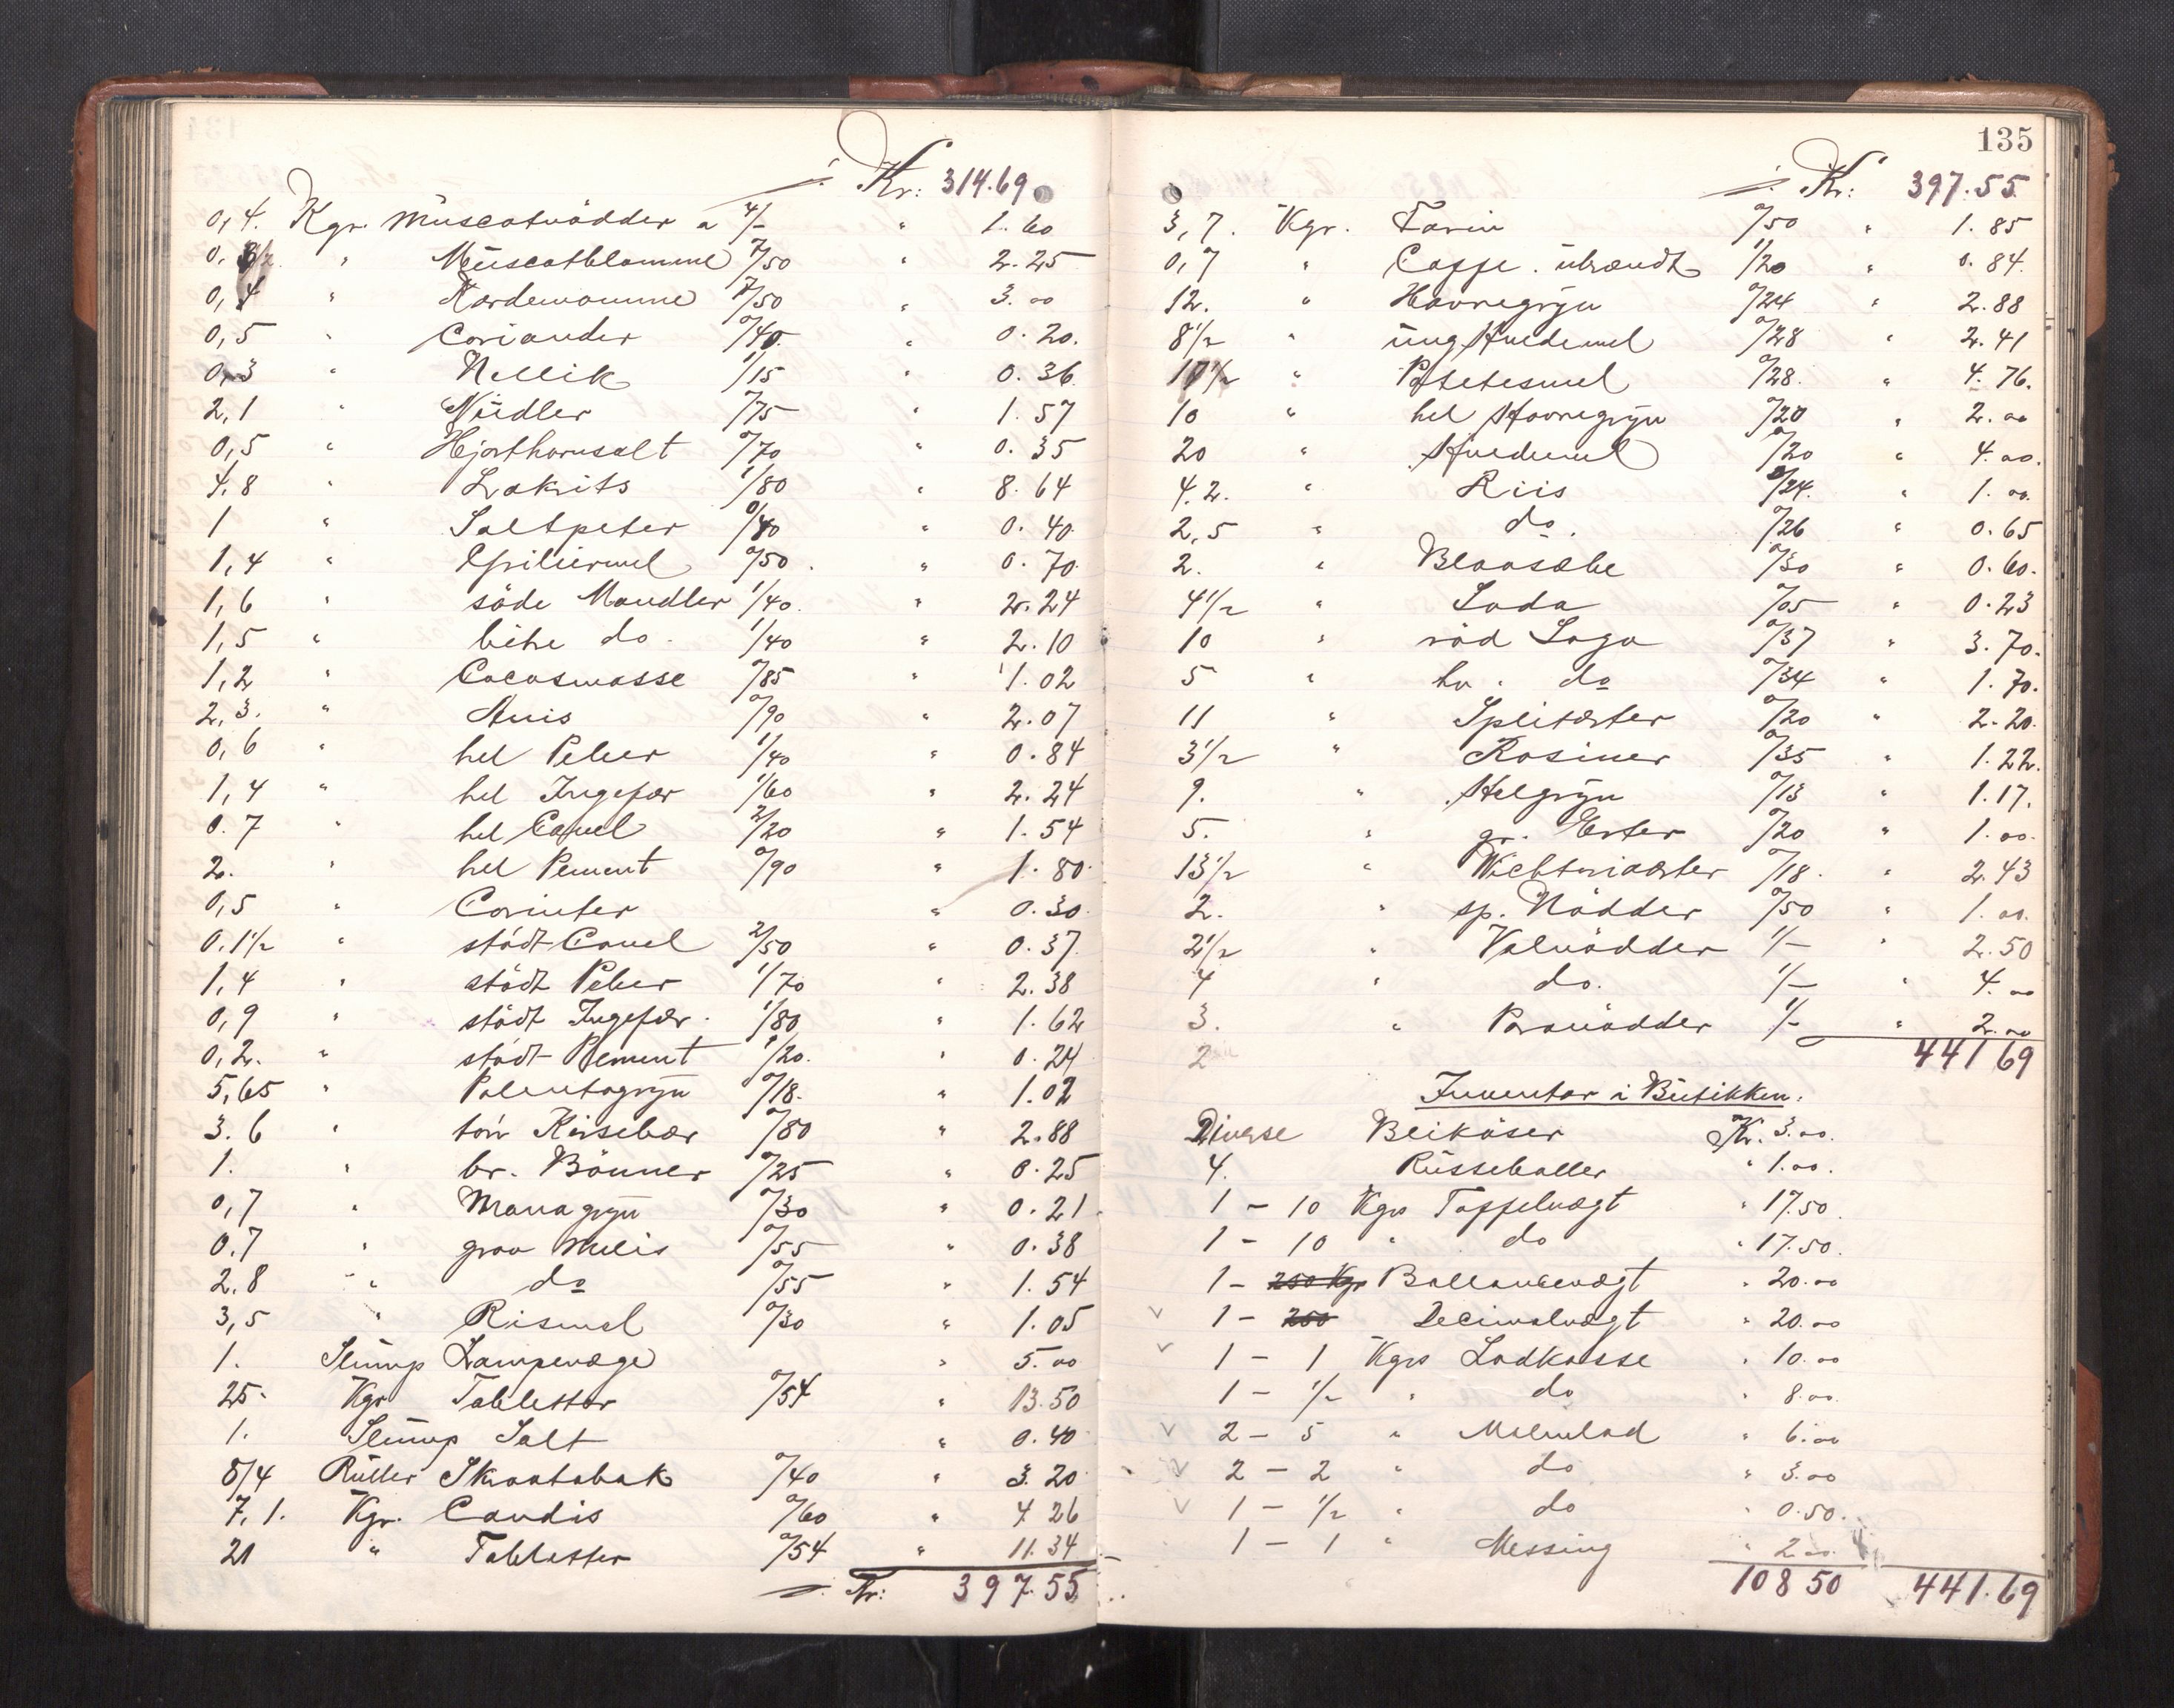 Kr: 314.69
0,4. Kgr. Muscatnödder a 4/- " 1.60
0, " Muscatblomme 7/50 " 2.25
0,4 " Kardemomme 7/50 " 3.00
0,5 " Coriander 0/40 " 0.20.
0,3 " Nellik 1/15 " 0.36
2,1 " Nüdler 0/75 " 1.57
0,5 " Hjorthornsalt 0/70 " 0.35
4,8 " Lakrits 1/80 " 8.64
1 " Saltpeter 0/40 " 0.40
1,4 " 0/50. " 0.70
1,6 " söde Mandler 1/40. " 2.24
1,5 " bitre do. 1/40 " 2.10
1,2 " Cocosmasse 0/85 " 1.02
2,3. " Anis 0/90 " 2.07
0,6 " hel Peber 1/40 " 0.84
1,4 " hel Ingefær 1/60 " 2.24
0.7 " hel Canel 2/20 " 1.54
2. " hel Pement 0/90 " 1.80
0,5 " Corinter " 0.30
0.1½ " stödt Canel 2/50 " 0.37
1,4 " stödt Peber 1/70 " 2.38
0,9 " stödt Ingefær. 1/80 " 1.62
0,2. " stödt Pement 1/20. " 0.24
5,65 " Polentagryn 0/18. " 1.02
3.6 " tör Kirsebær 0/80 " 2.88
1. " br. Bönner 0/25 " 0.25
0,7 " Mannagryn 0/30 " 0.21
0.7 " grov Melis 0/55 " 0.38
2.8 " do 0/55 " 1.54
3,5 " Rismel 0/30 " 1.05
1. Slump Lampevæge " 5.00
25. Kgr Tabletter 0/54 " 13.50
1. Slump Salt " 0.40
8/4 Ruller Skraatobak 0/40 " 3.20
7,1. Kgr. Candis 0/60 " 4 26
21 " Tabletter 0/54 " 11.34
Kr: 397.55
135
Kr: 397.55
3,7. Kgr. Farin 0/50 " 1.85
0,7 " Caffe. ubrændt 1/20 " 0.84.
12. " Havregryn 0/24 " 2.88
8½ " ung. Hvedemel 0/28 " 2.41
17½ " Potetesmel 0/28. " 4.76.
10 " hel Havregryn 0/20 " 2.00
20 " Hvedemel 0/20 " 4.00.
4.2. " Riis 0/24. " 1.00.
2,5 " do. 0/26 " 0.65
2. " Blaasæbe 0/30 " 0.60.
4½ " Soda 0/05 " 0.23
10 " röd Sago 0/37 " 3.70.
5 " hv. do 0/34 " 1.70.
11 " Spliterter 0/20 " 2.20.
3½ " Rosiner 0/35 " 1.22.
9. " Helgryn 0/13 " 1.17.
5. " gr. Erter 0/20 " 1.00.
13½ " Wicktoriaærter 0/18. " 2.43
2. " sp. Nödder 0/50 " 1.00.
2½ " Valnödder 1/- " 2.50
4 " do. 1/- " 4.00
3. " Paranödder 1/- " 2.00
2 441 69
Inventar i Butikken.
Diverse Blikdåser Kr. 3.00.
4. Rüsseballer " 1.00.
1 - 10 Kgrs Taffelvægt " 17.50.
1 - 10 " do " 17.50.
1 - 250 Kgr Ballancevægt " 20.00
v 1 - 250 Decimalvægt " 20.00
v 1 - 1 Kgrs Lodkasse " 10.00
1 - ½ " do " 8.00.
v 2 - 5 " Malmlod " 6.00
v 2 - 2 " do " 3.00
v 1 - ½ " do " 0.50.
1 - 1 " Messing " 2.00.
108 50 441.69